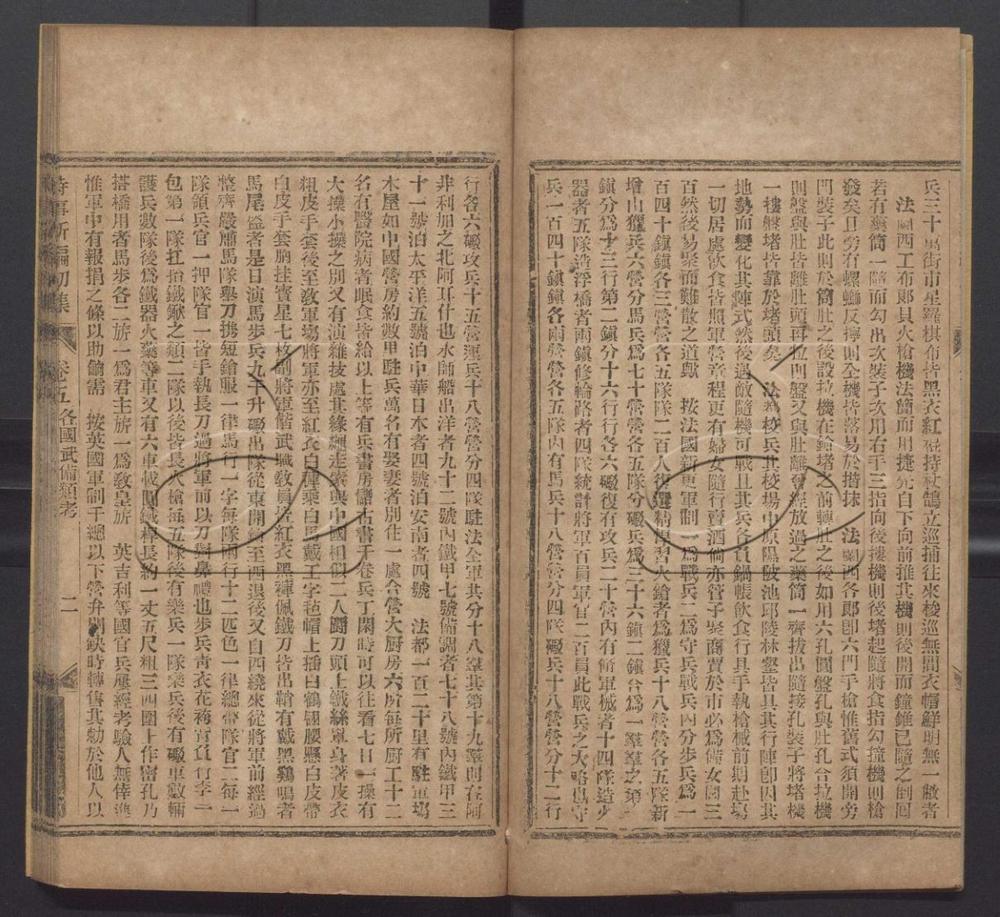 兵三十居街市星羅棋布皆黑衣紅褲持殺鵠立巡捕往來梭巡無間衣帽鮮明無一敝者
法蘭西工布郞具火槍機法簡而用捷先自下向前推其機則後開而鐘錐已隨之倒囘
若有藥筒一隨而勾出次裝子次用右手三指向後摟機則後堵起隨將食指勾撞機則槍
發矣且旁有螺螄反擰則全機皆落易於揩抹 法蘭西各郞卽六門手槍惟舊式須開旁
門裝子此則於筒肚之後設拉機在鎗堵之前轉肚之後如用六孔圓盤孔與肚孔合拉機
則盤與肚皆離肚頭再拉則盤又與肚離曾經放過之藥筒一齊拔出隨接孔裝子將堵機
一摟盤堵皆靠於堵頭矣 法 校兵其校場中原陽陂池邱陵林壑皆具其行陣卽因其
地勢而變化其陣式然後遇敵隨機可戰且其兵各負鍋帳飲食行具手執槍械前期赴塲
一切居處飲食皆照軍營章程更有婦女隨行賣酒倘亦管子聚商賈於市必爲備女閭三
百然後易聚而難散之道歟 按法國新更軍制一爲戰兵二爲守兵戰兵內分步兵爲一
百四十鎮鎮各三營營各五隊隊二百人復選精習火鎗者爲獵兵十八營營各五隊新
增山獵兵六營分馬兵爲七十營營各五隊分礮兵爲三十六鎮二鎮合爲一羣羣之第一
鎮分爲十三行第二鎮分十六行行各六礮復有攻兵二十營內有脩軍械者十四隊造火
器者五隊造浮橋者兩鎮修輪路者四隊統計將軍百員軍官二百員此戰兵之大略也守
兵一百四十鎮鎮各兩營營各五隊內有馬兵十八營營分四隊礮兵十八營營分十二行
行各六礮攻兵十五營運兵十八營營分四隊駐法全軍共分十八羣其第十九羣則在阿
非利加之北阿耳什也水師船出洋者九十二號內鐵甲七號備調者七十八號內鐵甲三
十一號泊太平洋五號泊中華日本者四號泊安南者四號 法都一百二十里有駐軍塲
木屋如中國營房約數里駐兵萬名有娶妻者別住一處合營大厨房六所每所厨工十二
名有醫院病者眠食皆給以上等有兵書房儲古書千卷兵丁閑時可以往看七日一操有
大操小操之別又有演雜技處其緣繩走索與中國相似二人鬬刀頭上戴絲罩身著皮衣
粗皮手套後至敎軍塲將軍亦至紅衣白褲乘白馬戴工字毡帽上插白鶴翎腰懸白皮帶
白皮手套胸挂寶星七枚副將軍偕武職敎員皆紅衣黑褲佩鐵刀皆出鞘有戴黑鷄唱者
馬尾盔者是日演馬步兵九千升礮出隊從東開行至西退後又自西繞來從將軍前經過
整齊嚴肅馬隊舉刀携短鎗服一律馬行一字每隊兩行十二匹色一律總帶隊官二每一
隊領兵官一押隊官一皆手執長刀過將軍前以刀與鼻齊禮也步兵靑衣花褲官負行李一
包第一隊扛抬鐵鍬之類二隊以後皆長火槍每五隊後有樂兵一隊樂兵後有礮車數輛
護兵數隊後爲鐵器火藥等車又有六車載 鐵桿長約一丈五尺粗三四圍上作密孔乃
搭橋用者馬步各二旂一爲君主旂一爲敎皇旂 英吉利等國官兵屢經考驗人無倖準
惟軍中有報捐之條以助餉需 按英國軍制千總以下營弁開缺時轉售其勳於他人以
時事新編初集 卷五各國武備類考 二